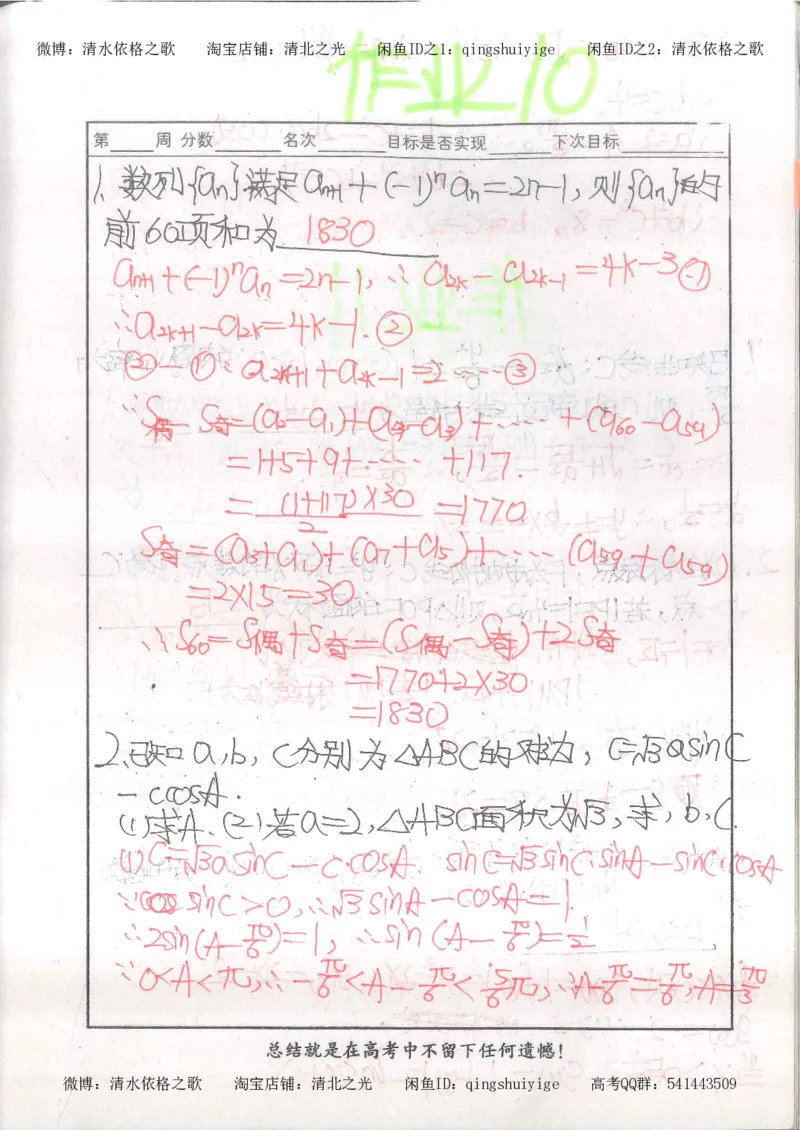 微博：清水依格之歌 淘宝店铺：清北之光 闲鱼ID之1：qingshuiyige 闲鱼ID之2：清水依格之歌
作业10
第____周 分数______ 名次______ 目标是否实现______ 下次目标________
1、数列{an}满足an+1+(-1)^n an=2n-1,则{an}的
前60项和为 1830
an+1+(-1)^n an=2n-1,∴a2k-a2k-1=4k-3①
∴a2k+1-a2k=4k-1.②
②-①:a2k+1+a2k-1=2……③
∵S偶-S奇=(a2-a1)+(a4-a3)+……+(a60-a59)
=1+5+9+……+117.
=(1+117)×30/2=1770
S奇=(a3+a1)+(a7+a5)+……(a59+a59)
=2×15=30
∴S60=S偶+S奇=(S偶-S奇)+2S奇
=1770+2×30
=1830
2、已知a,b,c分别为△ABC的对边,c=√3asinC
-ccosA.
(1)求A.(2)若a=2,△ABC面积为√3,求,b,c.
(1)c=√3asinC-c·cosA. sinC=√3sinC·sinA-sinC·cosA
∵sinC>0,∴√3sinA-cosA=1.
∴2sin(A-π/6)=1,∴sin(A-π/6)=1/2
∵0<A<π,∴-π/6<A-π/6<5/6π,∴A-π/6=π/6,A=π/3
总结就是在高考中不留下任何遗憾！
微博：清水依格之歌 淘宝店铺：清北之光 闲鱼ID：qingshuiyige 高考QQ群：541443509